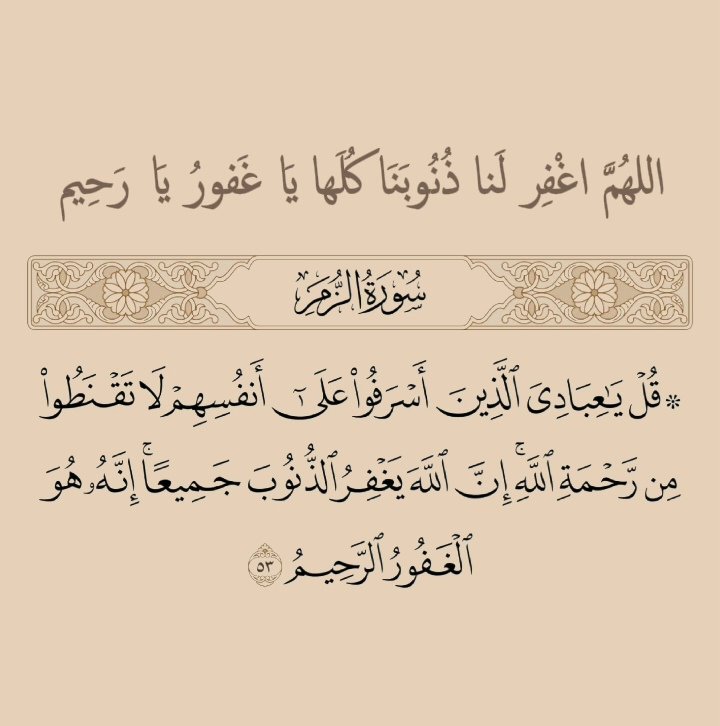 اللهُمَّ اغْفِر لَنا ذُنُوبَنَا كُلَها يَا غَفورُ يَا رَحِيم
سُورَةُ الزُّمَرِ
۞ قُلۡ يَٰعِبَادِيَ ٱلَّذِينَ أَسۡرَفُواْ عَلَىٰٓ أَنفُسِهِمۡ لَا تَقۡنَطُواْ
مِن رَّحۡمَةِ ٱللَّهِۚ إِنَّ ٱللَّهَ يَغۡفِرُ ٱلذُّنُوبَ جَمِيعًاۚ إِنَّهُۥ هُوَ
ٱلۡغَفُورُ ٱلرَّحِيمُ ٥٣